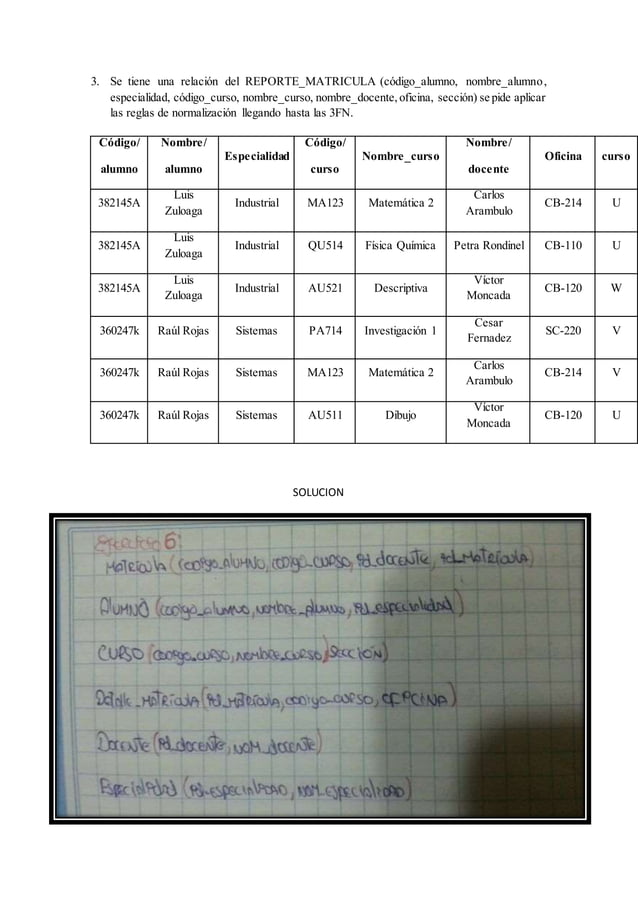 3. Se tiene una relación del REPORTE_MATRICULA (código_alumno, nombre_alumno,
especialidad, código_curso, nombre_curso, nombre_docente, oficina, sección) se pide aplicar
las reglas de normalización llegando hasta las 3FN.
Código/ alumno Nombre/ alumno Especialidad Código/ curso Nombre_curso Nombre/ docente Oficina curso
382145A Luis Zuloaga Industrial MA123 Matemática 2 Carlos Arambulo CB-214 U
382145A Luis Zuloaga Industrial QU514 Física Química Petra Rondinel CB-110 U
382145A Luis Zuloaga Industrial AU521 Descriptiva Víctor Moncada CB-120 W
360247k Raúl Rojas Sistemas PA714 Investigación 1 Cesar Fernadez SC-220 V
360247k Raúl Rojas Sistemas MA123 Matemática 2 Carlos Arambulo CB-214 V
360247k Raúl Rojas Sistemas AU511 Dibujo Víctor Moncada CB-120 U
SOLUCION
Ejercicio 6:
Matricula (codigo_alumno, codigo_curso, id_docente, id_Matricula)
Alumno (codigo_alumno, nombre_alumno, id_especialidad)
CURSO (codigo_curso, nombre_curso, sección)
Detalle_Matricula (id_Matricula, codigo_curso, OFICINA)
Docente (id_docente, nom_docente)
Especialidad (id_especialidad, nom_especialidad)